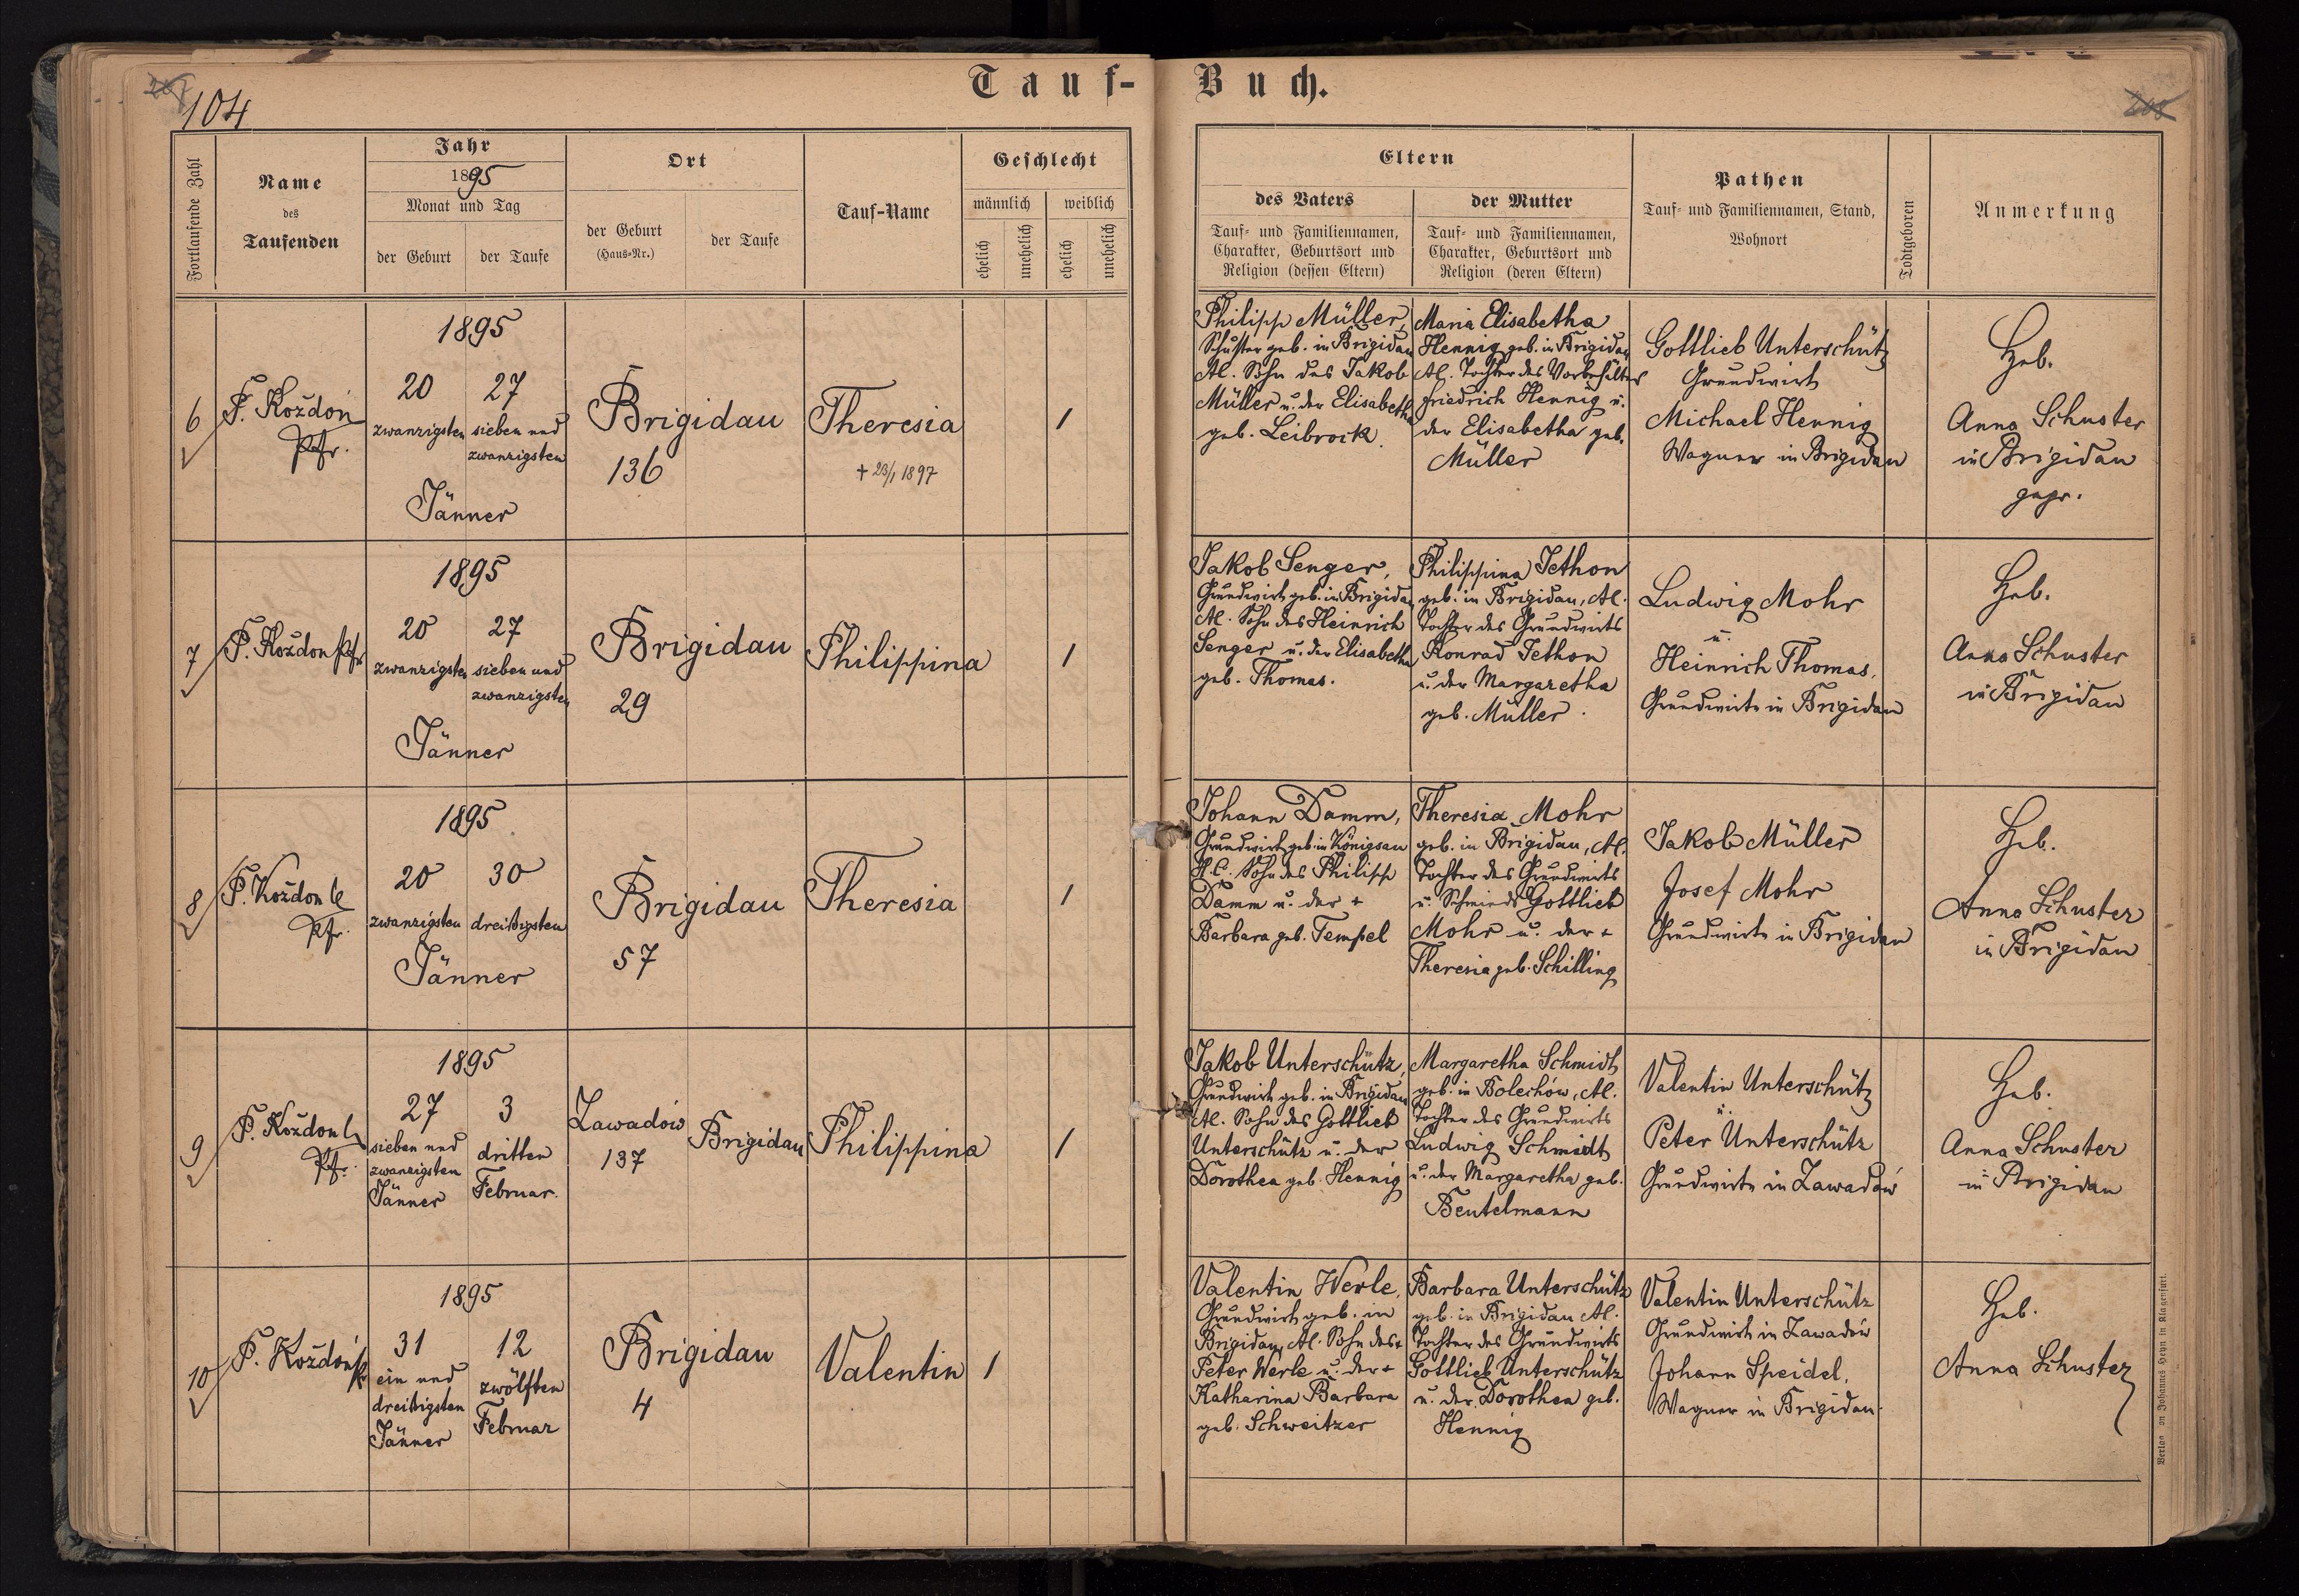 Tauf-Buch.
104
Fortlaufende Zahl
Name
des
Taufenden
Jahr
1895
Monat und Tag
der Geburt
der Taufe
Ort
der Geburt
(Haus-Nr.)
der Taufe
Tauf-Name
Geschlecht
männlich
weiblich
ehelich
unehelich
ehelich
unehelich
Eltern
des Vaters
Tauf- und Familiennamen,
Charakter, Geburtsort und
Religion (dessen Eltern)
der Mutter
Tauf- und Familiennamen,
Charakter, Geburtsort und
Religion (deren Eltern)
Pathen
Tauf- und Familiennamen, Stand,
Wohnort
Todtgeboren
Anmerkung
6
P. Koždoń
Pfr.
1895
20
zwanzigsten
27
sieben und
zwanzigsten
Jänner
Brigidau
136
Theresia
+ 23/1 1897
1
Philipp Müller,
Schuster geb. in Brigidau
AC. Sohn des Jakob
Müller u. der Elisabetha
geb. Leibrock.
Maria Elisabetha
Hennig geb. in Brigidau
AC. Tochter des Vorbehälter
Friedrich Hennig u.
der Elisabetha geb.
Müller
Gottlieb Unterschütz
Grundwirt
Michael Hennig
Wagner in Brigidau
Heb.
Anna Schuster
in Brigidau
gepr.
7
P. Koždon Pfr
1895
20
zwanzigsten
27
sieben und
zwanzigsten
Jänner
Brigidau
29
Philippina
1
Jakob Senger,
Grundwirt geb. in Brigidau
AC. Sohn des Heinrich
Senger u. der Elisabetha
geb. Thomas.
Philippina Jethon
geb. in Brigidau, AC.
Tochter des Grundwirts
Konrad Jethon
u. der Margaretha
geb. Müller.
Ludwig Mohr
u.
Heinrich Thomas,
Grundwirte in Brigidau
Heb.
Anna Schuster
in Brigidau
8
P. Koždon
Pfr.
1895
20
zwanzigsten
30
dreißigsten
Jänner
Brigidau
57
Theresia
1
Johann Damm,
Grundwirt geb. in Königsau
H.C. Sohn des Philipp
Damm u. der +
Barbara geb. Tempel
Theresia Mohr
geb. in Brigidau, AC.
Tochter des Grundwirts
u. Schmieds Gottlieb
Mohr u. der +
Theresia geb. Schilling
Jakob Müller
Josef Mohr
Grundwirte in Brigidau
Heb.
Anna Schuster
in Brigidau
9
P. Koždon
Pfr.
1895
27
sieben und
zwanzigsten
Jänner
3
dritten
Februar.
Zawadów
137
Brigidau
Philippina
1
Jakob Unterschütz,
Grundwirt geb. in Brigidau
AC. Sohn des Gottlieb
Unterschütz u. der
Dorothea geb. Hennig
Margaretha Schmidt
geb. in Bolechów, AC.
Tochter des Grundwirts
Ludwig Schmidt
u. der Margaretha geb.
Beutelmann
Valentin Unterschütz
u.
Peter Unterschütz
Grundwirte in Zawadów
Heb.
Anna Schuster
in Brigidau
10
P. Koždoń
1895
31
ein und
dreißigsten
Jänner
12
zwölften
Februar
Brigidau
4
Valentin
1
Valentin Werle,
Grundwirt geb. in
Brigidau, AC. Sohn des +
Peter Werle u. der +
Katharina Barbara
geb. Schweitzer
Barbara Unterschütz
geb. in Brigidau AC.
Tochter des Grundwirts
Gottlieb Unterschütz
u. der Dorothea geb.
Hennig
Valentin Unterschütz
Grundwirt in Zawadów
Johann Speidel,
Wagner in Brigidau.
Heb.
Anna Schuster
Verlag von Johannes Heyn in Klagenfurt.